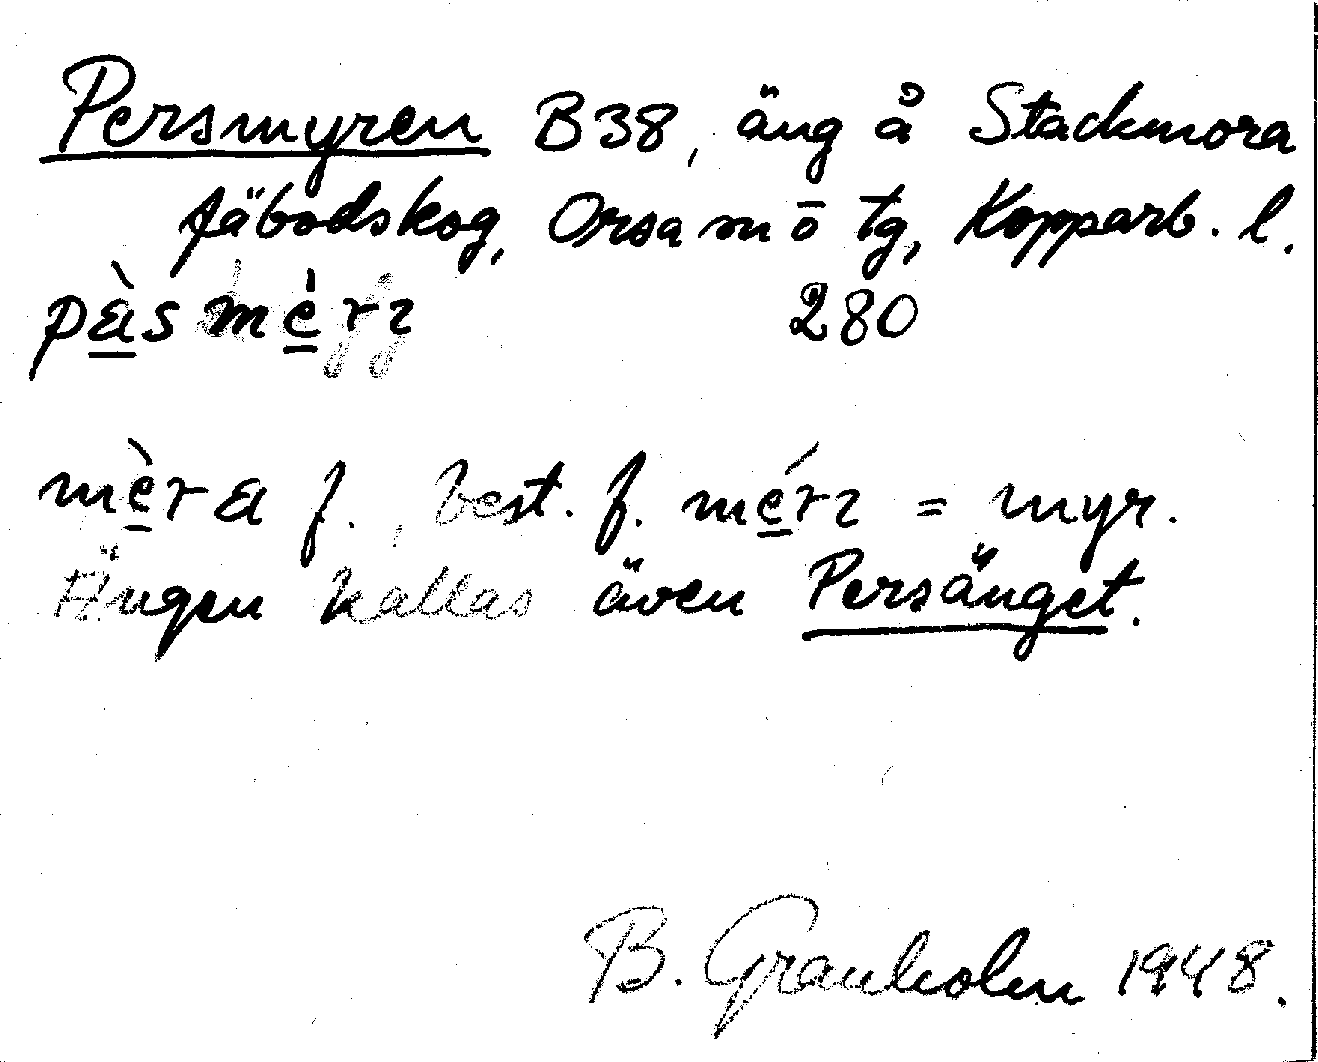 Persmyren B38, äng å Stackmora
fäbodskog, Orsa m ō tg, Kopparb. l.
pàsmèrɿ 280
mèra f., best. f. mérɿ = myr.
Ängen kallas även Persänget.
B. Granholm 1948.